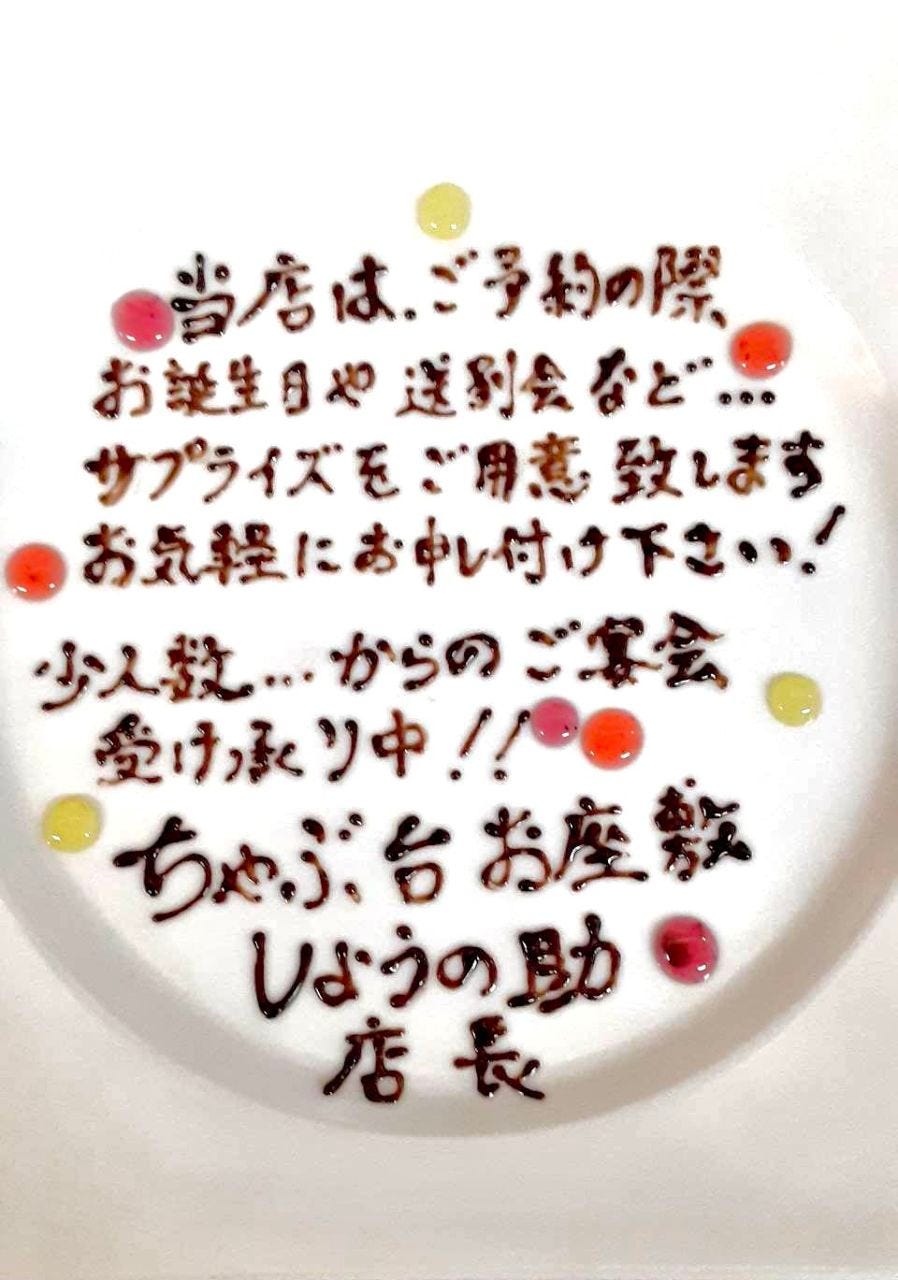 当店は、ご予約の際、
お誕生日や送別会など…
サプライズをご用意致します
お気軽にお申し付け下さい!
少人数…からのご宴会
受け承り中!!
ちゃぶ台お座敷
しょうの助
店長